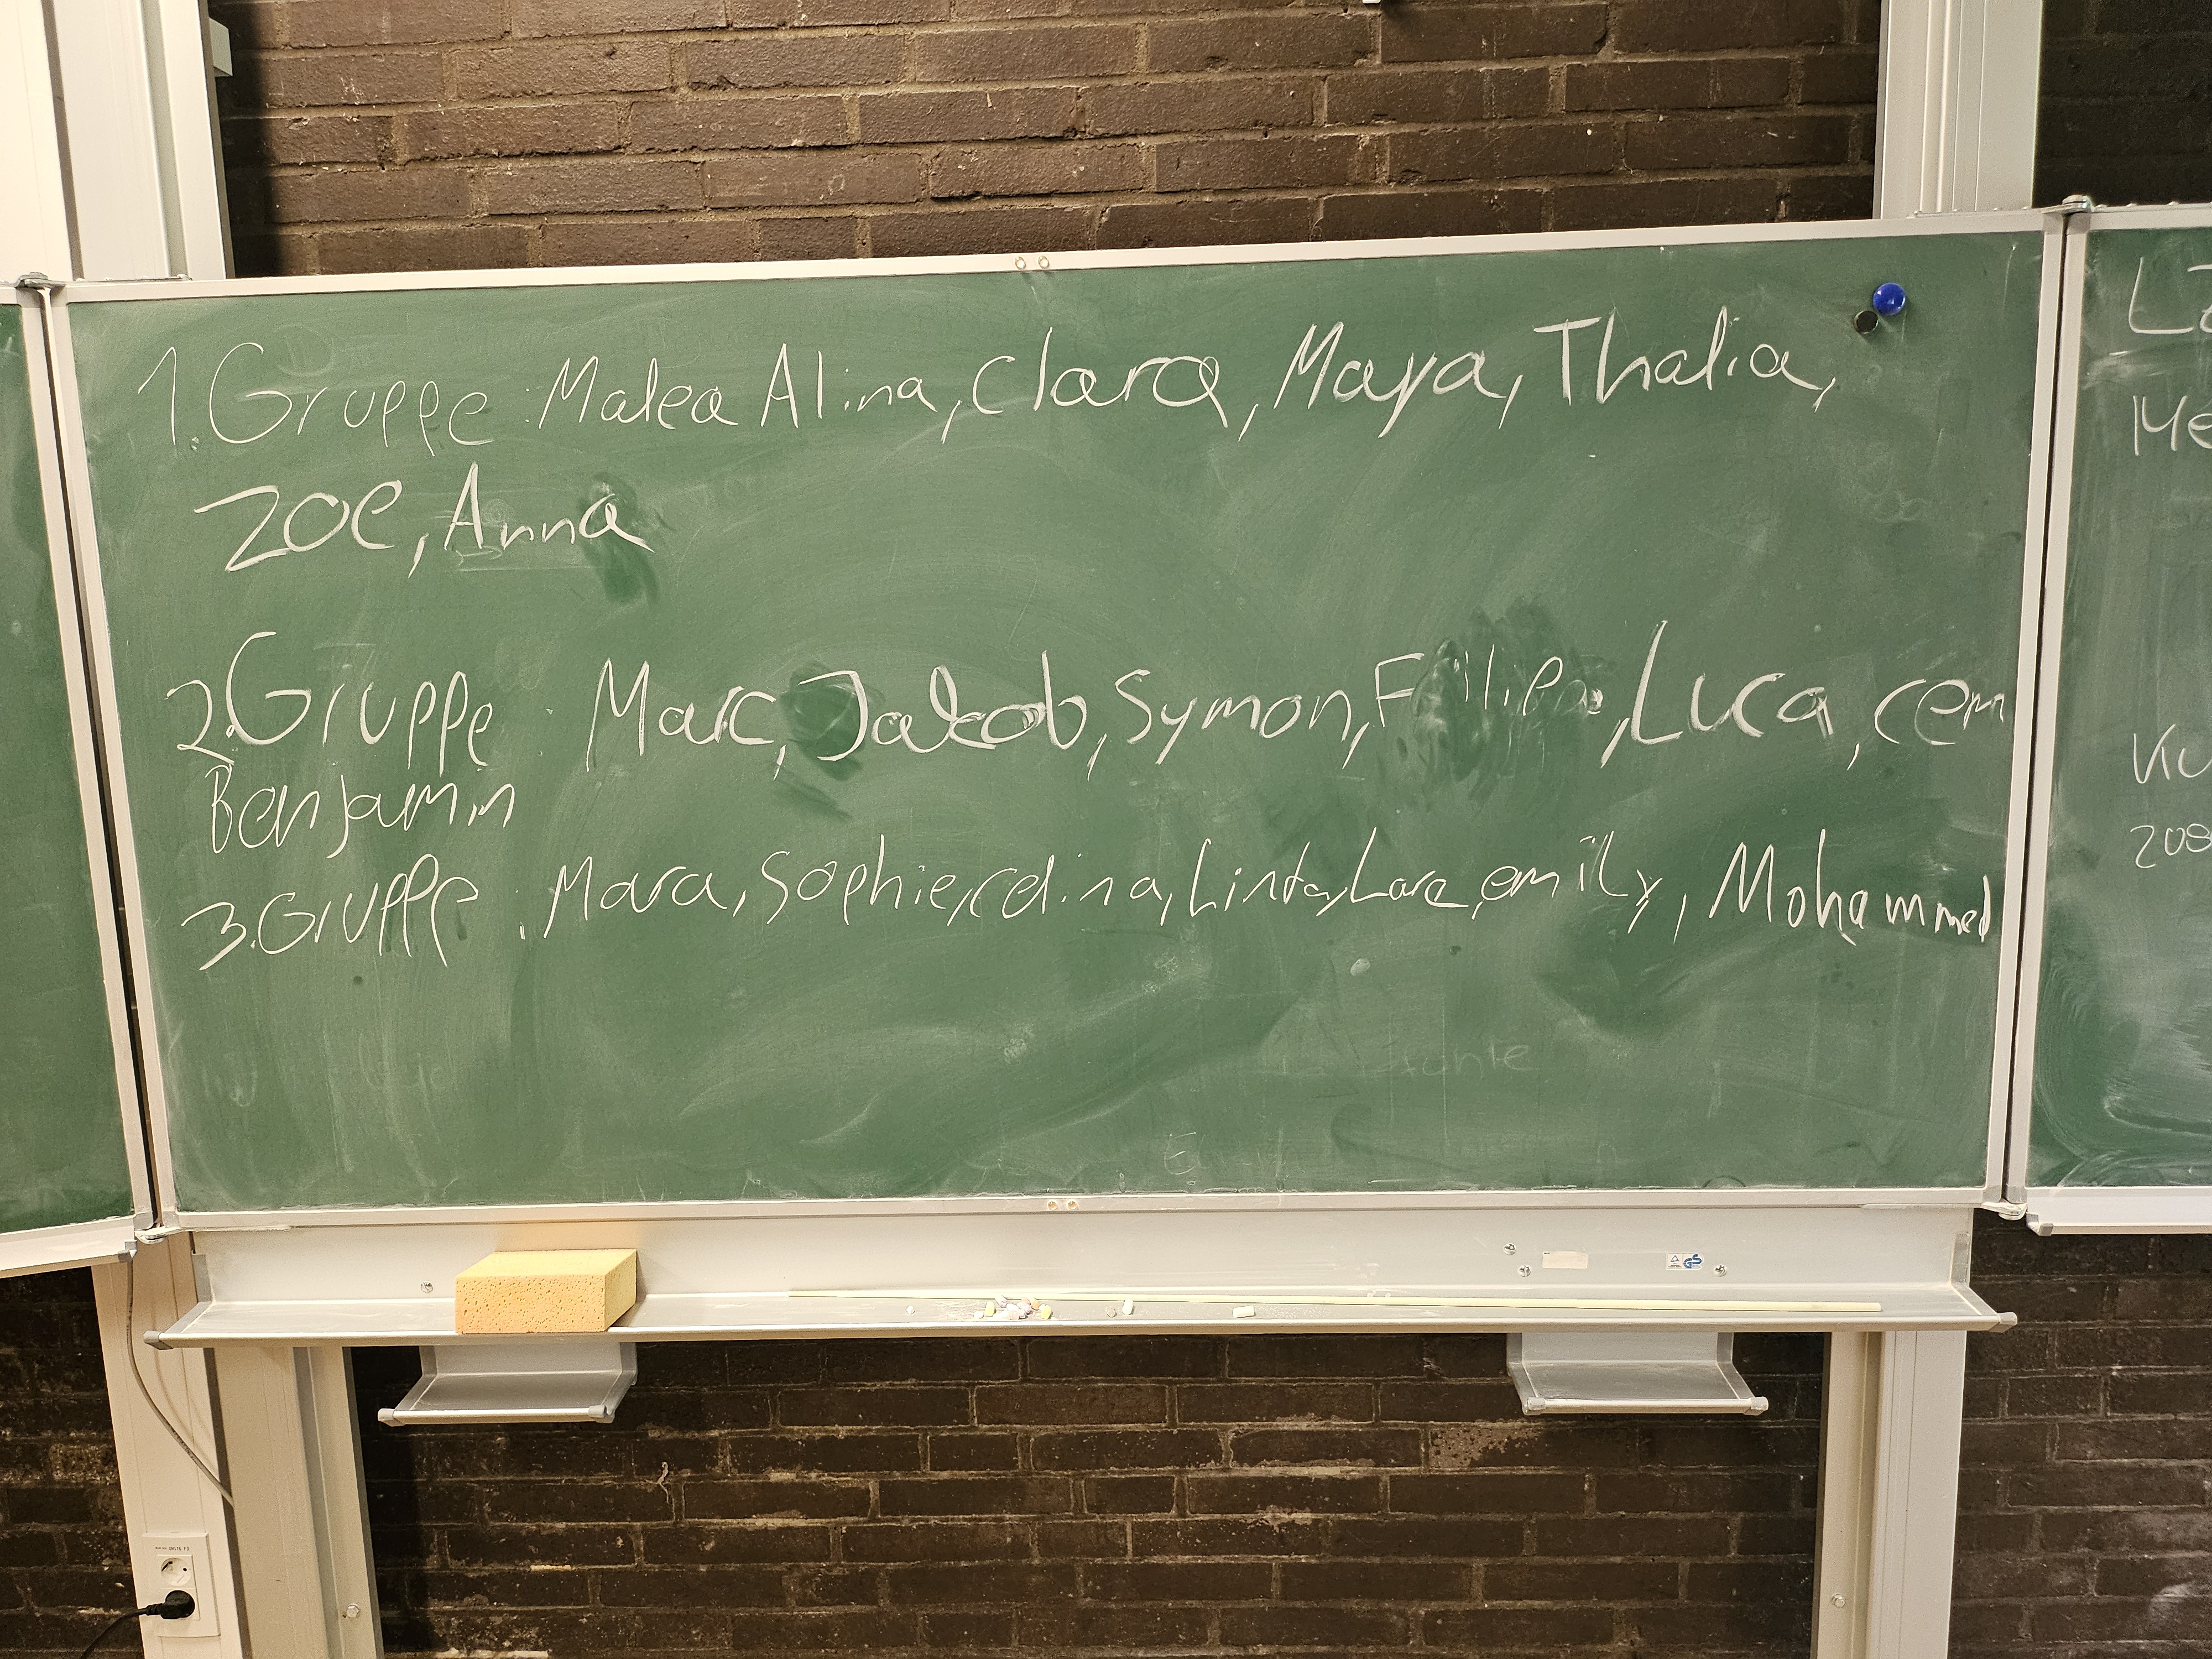 1. Gruppe: Malea Alina, Clara, Maya, Thalia,
Zoe, Anna
2. Gruppe Marc, Jakob, Symon, Luca, cem
Benjamin
3. Gruppe: Mara, Sophie, celina, Linta, Lara, emily, Mohammed